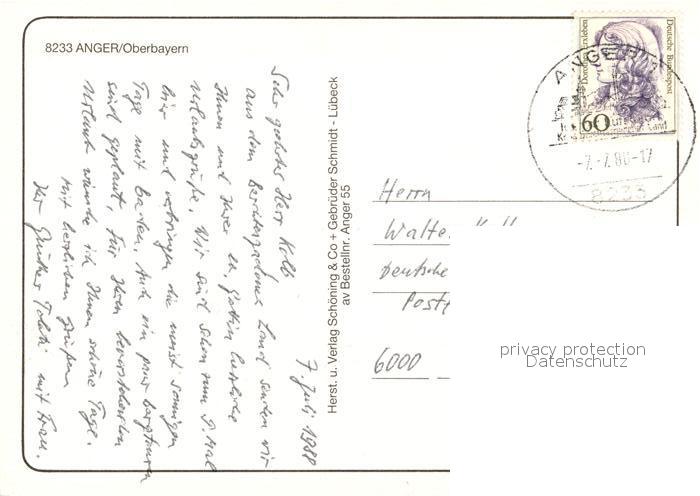 8233 ANGER/Oberbayern
7. Juli 1988
Sehr geehrter Herr Kolb
aus dem Berchtesgadener Land senden wir
Ihnen und Ihrer Gattin herzliche
Urlaubsgrüße. Wir sind schon zum 9. Mal
hier und verbringen die meist sonnigen
Tage mit Baden. Auch ein paar Bergtouren
sind geplant. Für Ihren bevorstehenden
Urlaub wünsche ich Ihnen schöne Tage.
Mit herzlichen Grüßen
Ihr Günther mit Frau.
Herst. u. Verlag Schöning & Co + Gebrüder Schmidt - Lübeck
av Bestellnr. Anger 55
Deutsche Bundespost
60
ANGER
-7.-7.88-17
8233
Herrn
Walte
Deutsche
Post
6000
privacy protection
Datenschutz